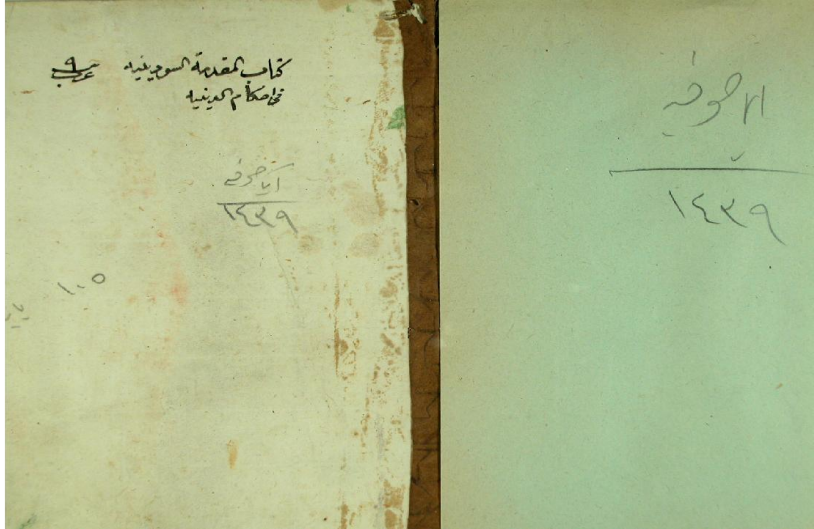 اياصوفيه
١٤٣٩
كتاب المقدمة السودينيه
في احكام الدينيه
٩
عرب
اياصوفيه
١٤٣٩
١٠٥